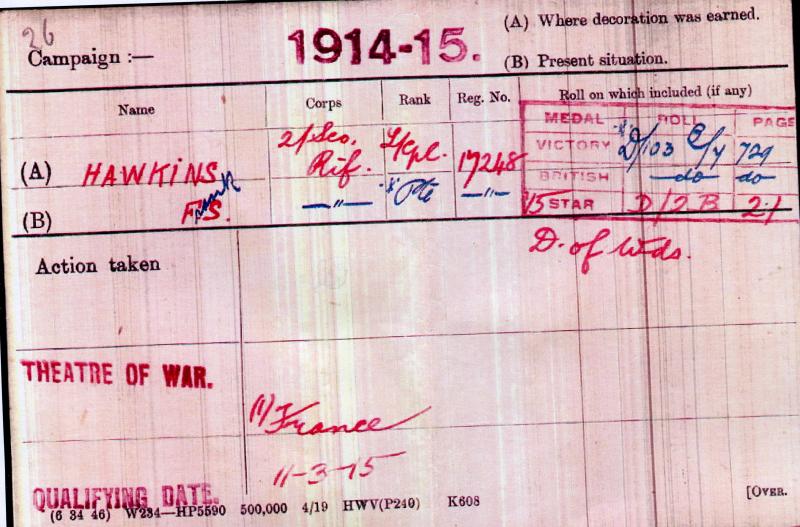 26
Campaign :—
1914-15.
(A) Where decoration was earned.
(B) Present situation.
Name Corps Rank Reg. No. Roll on which included (if any)
MEDAL ROLL PAGE
(A) HAWKINS 2/Sco. Rif. L/Cpl. 17248
VICTORY D/103 B/4 729
(B) F.S. Frank —"— * Pte —"—
BRITISH do do
15 STAR D/2B 21
D. of Wds.
Action taken
THEATRE OF WAR.
(1) France
11-3-15
QUALIFYING DATE.
[OVER.
(6 34 46) W234—HP5590 500,000 4/19 HWV(P240) K608